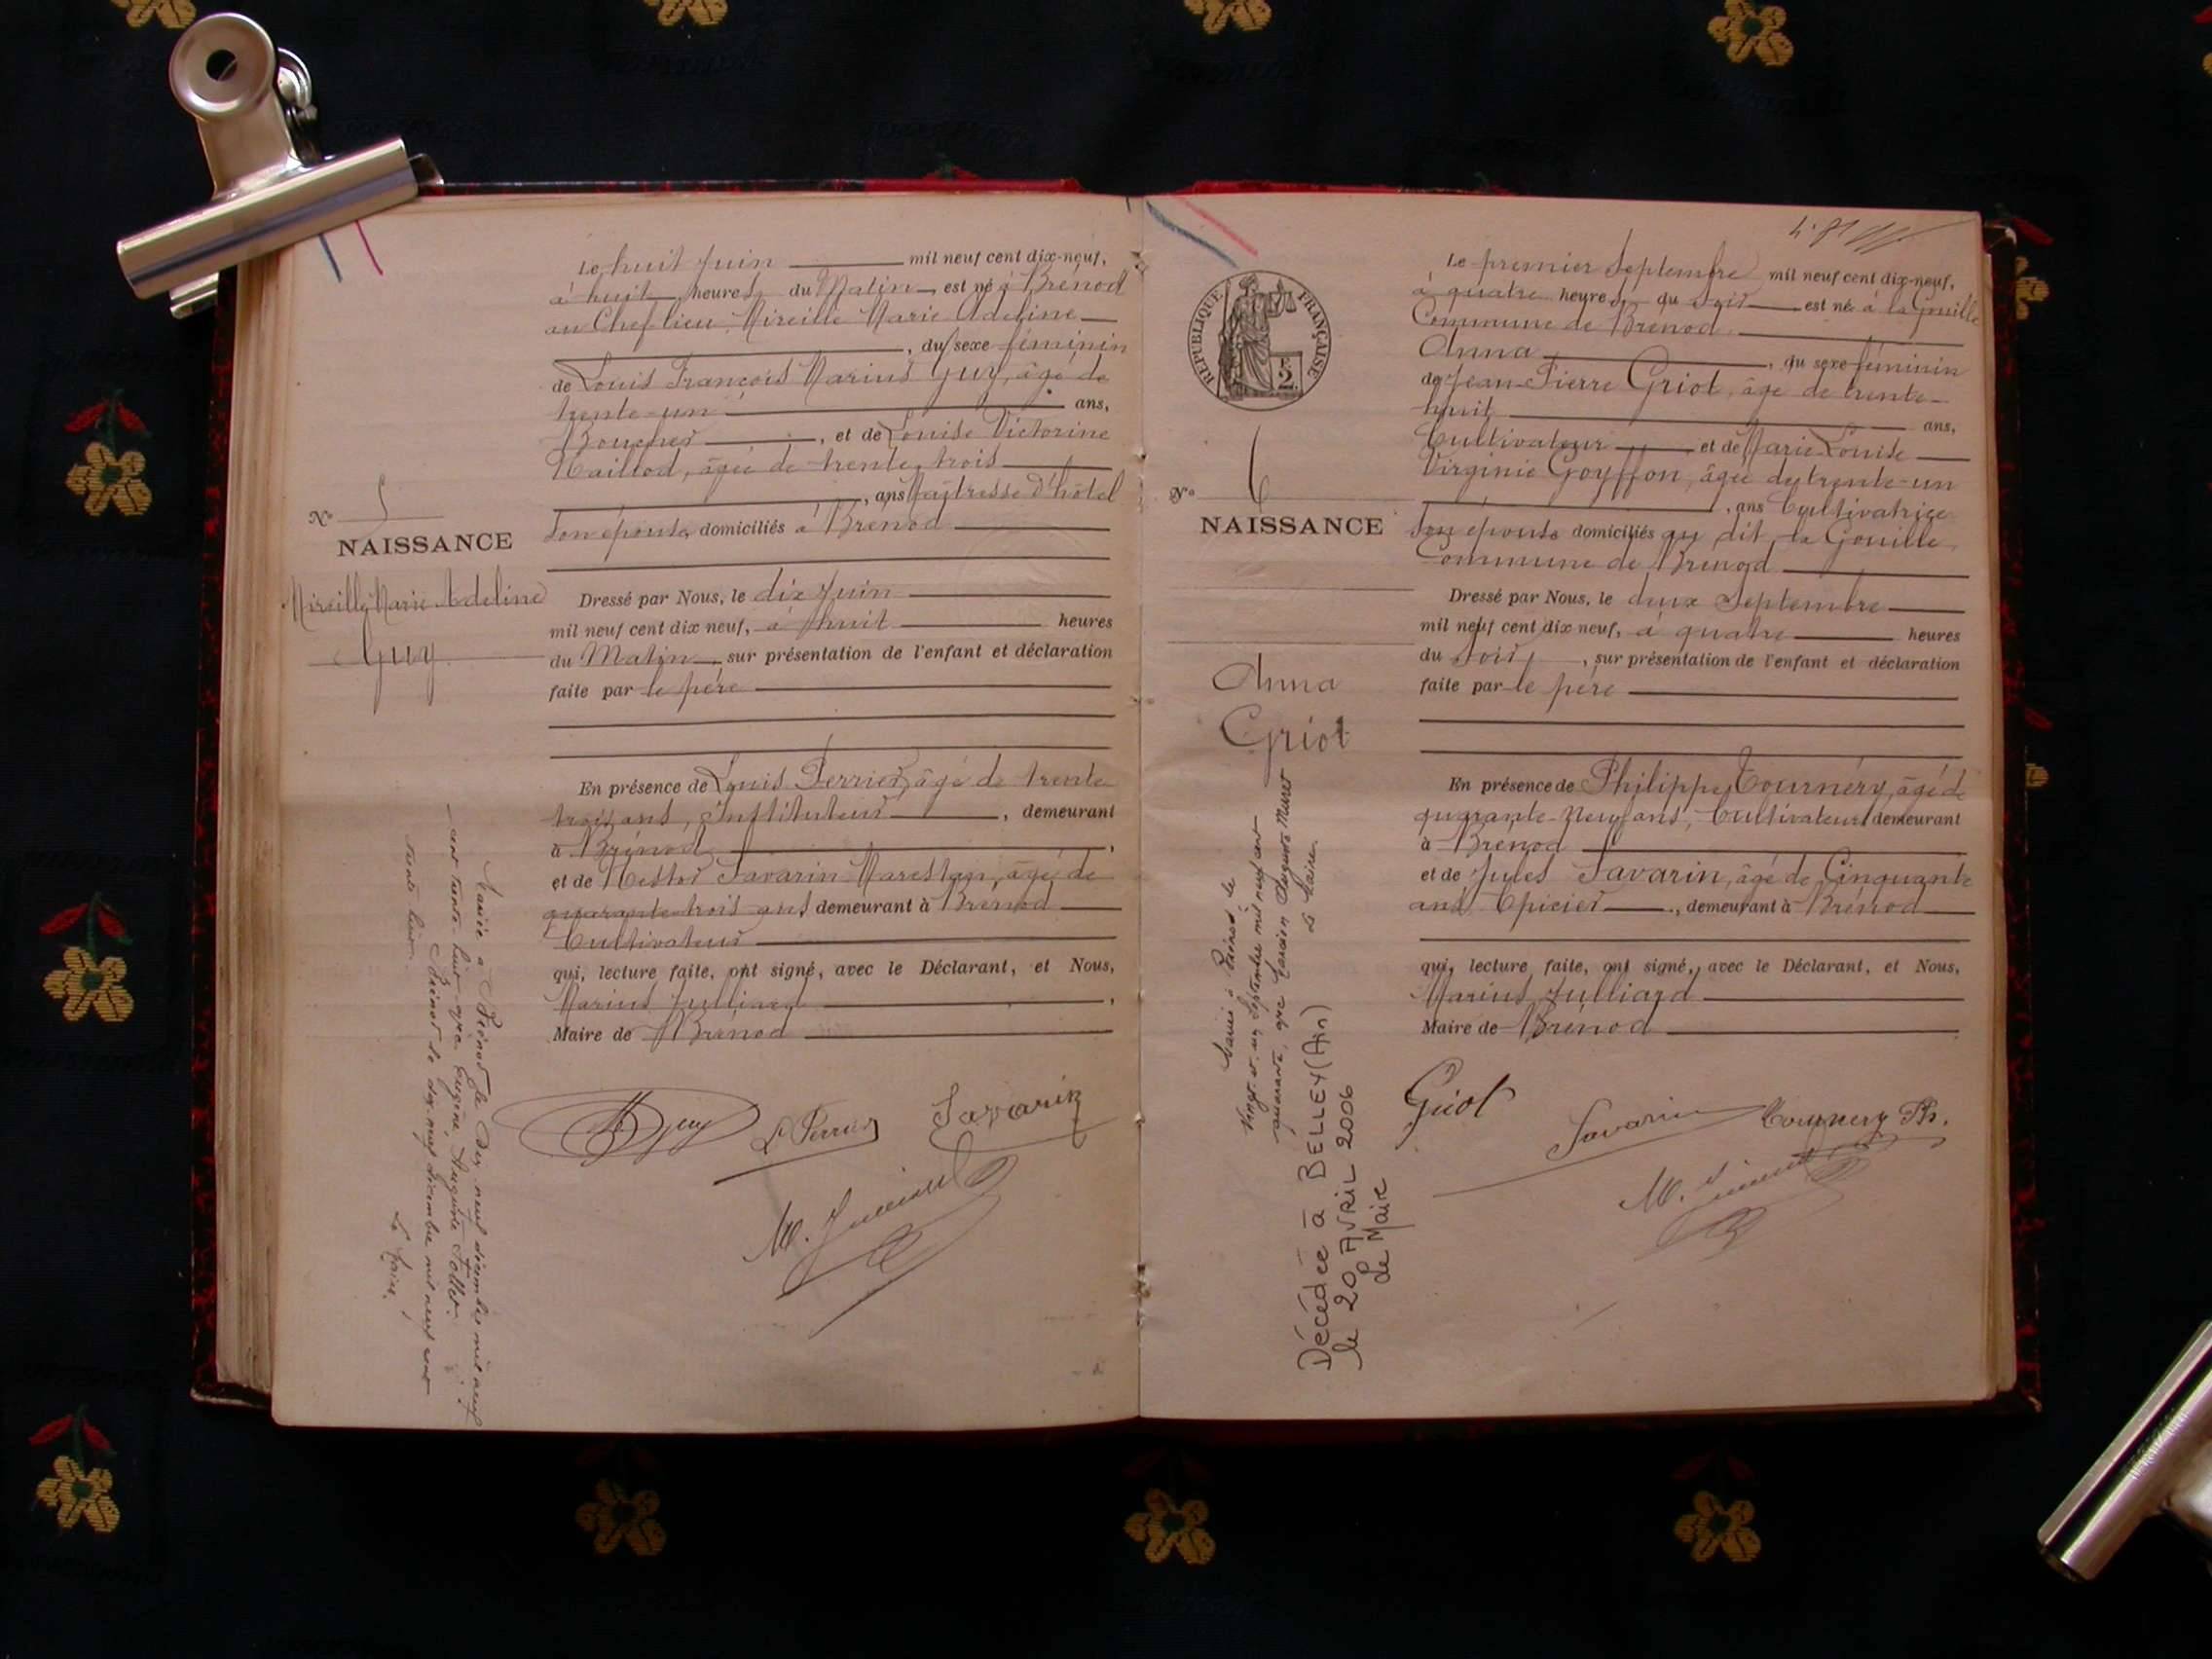 Le huit Juin mil neuf cent dix-neuf,
à huit heures du Matin, est né à Brénod
au Chef-lieu Mireille Marie Adeline
, du sexe féminin
de Louis François Marius Guy, âgé de
trente-un ans,
Boucher, et de Louise Victorine
âgée de trente trois
, ans Maîtresse d'hôtel
Son épouse, domiciliés à Brénod
No 5
NAISSANCE
Mireille Marie Adeline
Guy
Dressé par Nous, le dix Juin
mil neuf cent dix neuf, à huit heures
du Matin, sur présentation de l'enfant et déclaration
faite par le père
En présence de Louis Perrier, âgé de trente
trois ans, Instituteur, demeurant
à Brénod,
et de Nestor Savarin Marestan, âgé de
quarante-trois ans demeurant à Brénod
Cultivateur
qui, lecture faite, ont signé, avec le Déclarant, et Nous,
Marius Julliard,
Maire de Brénod
Guy
L. Perrier
Savarin
M. Julliard
Mariée à Brénod le dix neuf décembre mil neuf
cent trente-huit avec Eugène Auguste
Brénod le dix neuf décembre mil neuf cent
trente huit.
Le Maire,
RÉPUBLIQUE FRANÇAISE
Le premier Septembre mil neuf cent dix-neuf,
à quatre heures du Soir est née à la Gouille
Commune de Brénod
Anna, du sexe féminin
de Jean-Pierre Griot, âgé de trente-
huit ans,
Cultivateur et de Marie-Louise
Virginie Goyffon, âgée de trente-un
, ans Cultivatrice
Son épouse domiciliés au dit la Gouille
Commune de Brénod
No 6
NAISSANCE
Anna
Griot
Dressé par Nous, le deux Septembre
mil neuf cent dix neuf, à quatre heures
du Soir, sur présentation de l'enfant et déclaration
faite par le père
En présence de Philippe Tournéry, âgé de
quarante-neuf ans, Cultivateur demeurant
à Brénod
et de Jules Savarin, âgé de Cinquante
ans Epicier, demeurant à Brénod
qui, lecture faite, ont signé, avec le Déclarant, et Nous,
Marius Julliard
Maire de Brénod
Griot
Savarin
Tournery Ph.
M. Julliard
Mariée à Brénod le
vingt et un Septembre mil neuf cent
quarante, avec Lucien Auguste Muret
Le Maire.
Décédée à BELLEY (Ain)
le 20 AVRIL 2006
Le Maire